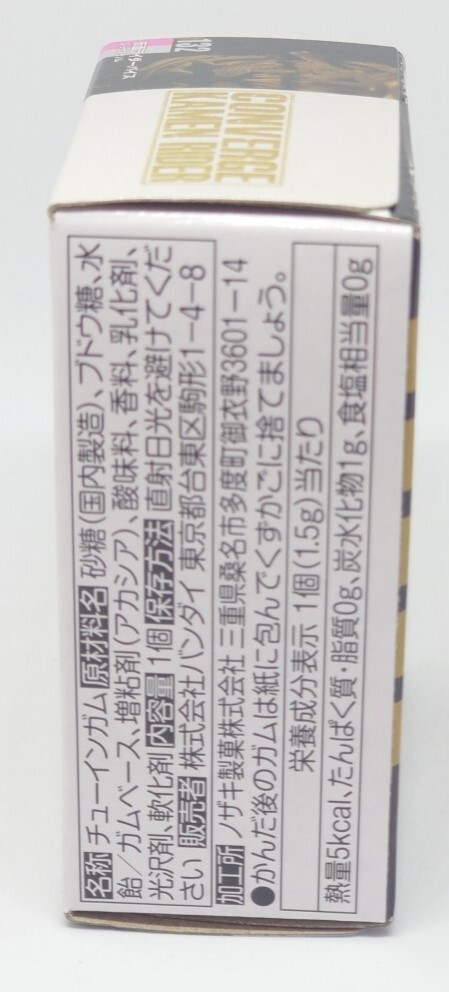 CONVERGE
KAMEN RIDER
名称 チューインガム 原材料名 砂糖(国内製造)、ブドウ糖、水
飴/ガムベース、増粘剤(アカシア)、酸味料、香料、乳化剤、
光沢剤、軟化剤 内容量 1個 保存方法 直射日光を避けてくだ
さい 販売者 株式会社バンダイ 東京都台東区駒形1-4-8
加工所 ノザキ製菓株式会社 三重県桑名市多度町御衣野3601-14
●かんだ後のガムは紙に包んでくずかごに捨てましょう。
栄養成分表示 1個(1.5g)当たり
熱量5kcal、たんぱく質・脂質0g、炭水化物1g、食塩相当量0g